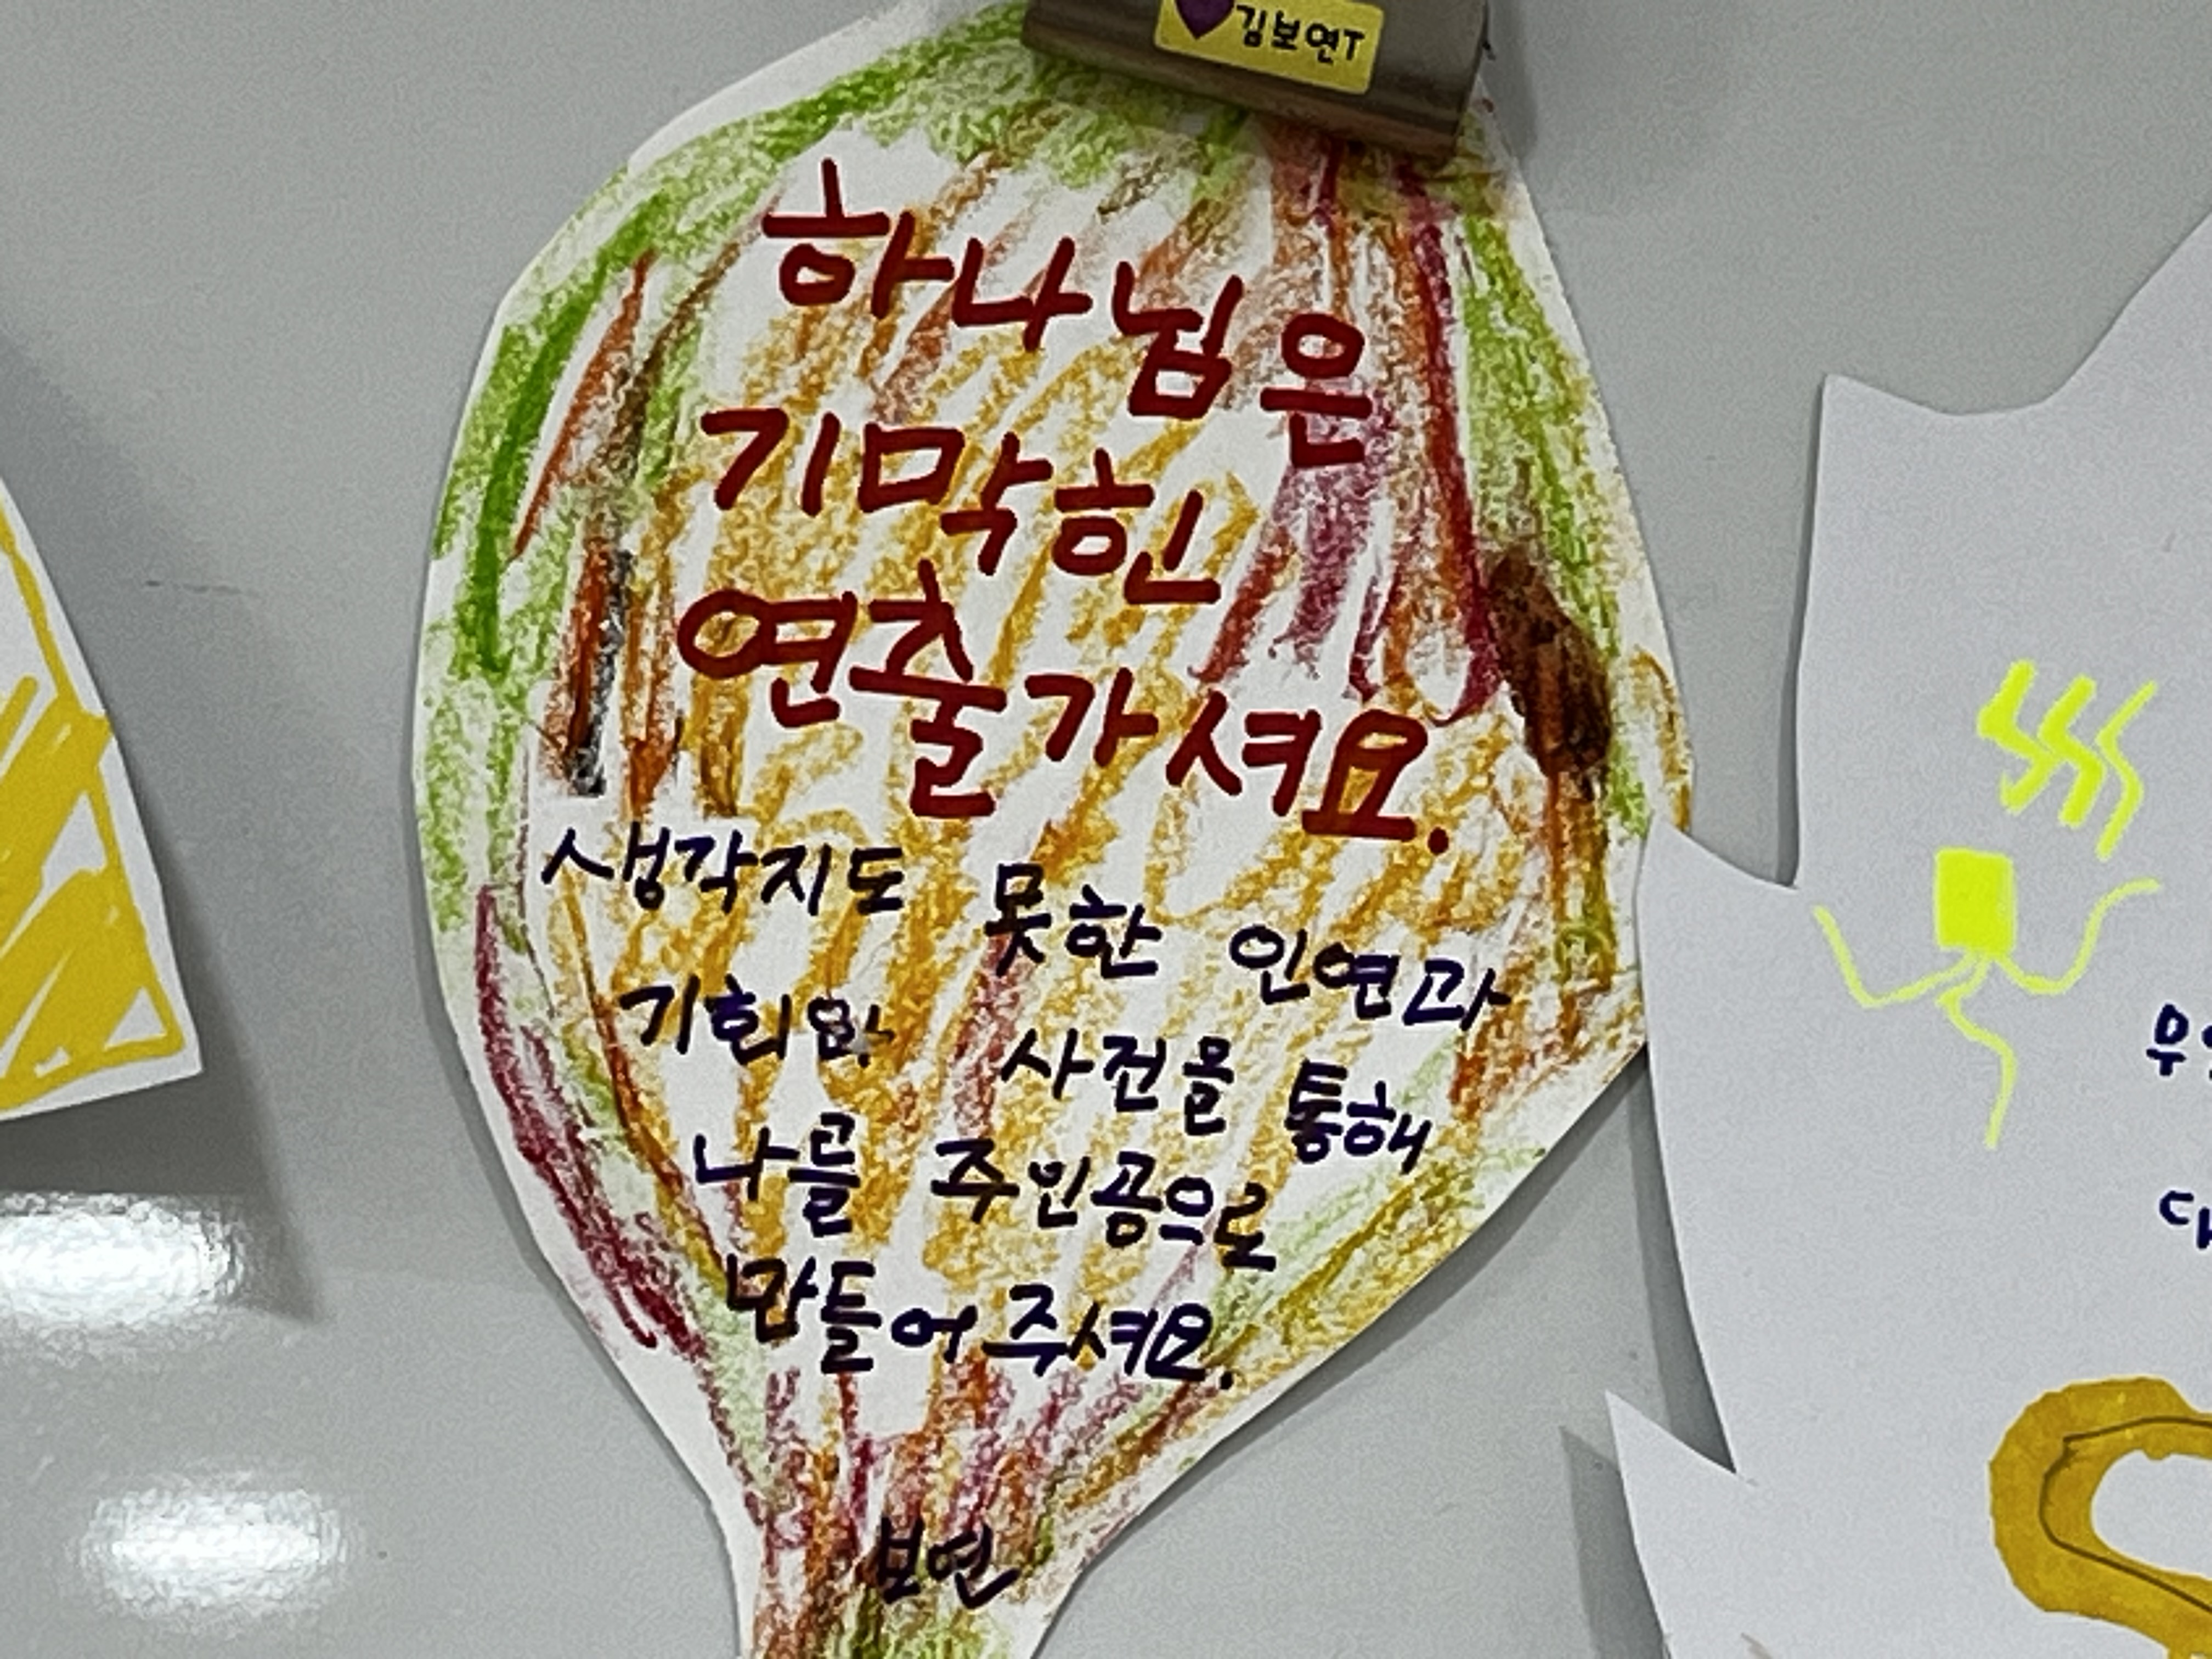 김보연T
하나님은
기막힌
연출가셔요.
생각지도 못한 인연과
기회와 사건을 통해
나를 주인공으로
만들어 주셔요.
보연